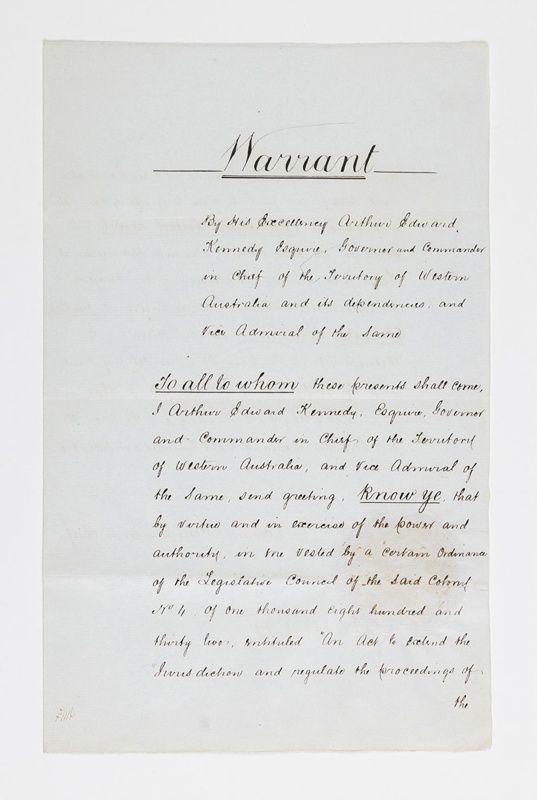 Warrant
By His Excellency Arthur Edward
Kennedy Esquire, Governor and Commander
in Chief of the Territory of Western
Australia and its dependencies, and
Vice Admiral of the Same
To all to whom these presents shall come,
I Arthur Edward Kennedy, Esquire, Governor
and Commander in Chief, of the Territory
of Western Australia, and Vice Admiral of
the Same, send greeting, Know ye, that
by virtue and in exercise of the power and
authority, in me vested by a certain Ordinance
of the Legislative Council of the said Colony
No 4, of one thousand eight hundred and
thirty two, entituled "An Act to extend the
"Jurisdiction and regulate the proceedings of
the